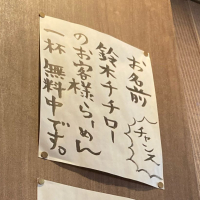 お名前
チャンス
鈴木チチロー
のお客様らーめん
一杯 無料中です。